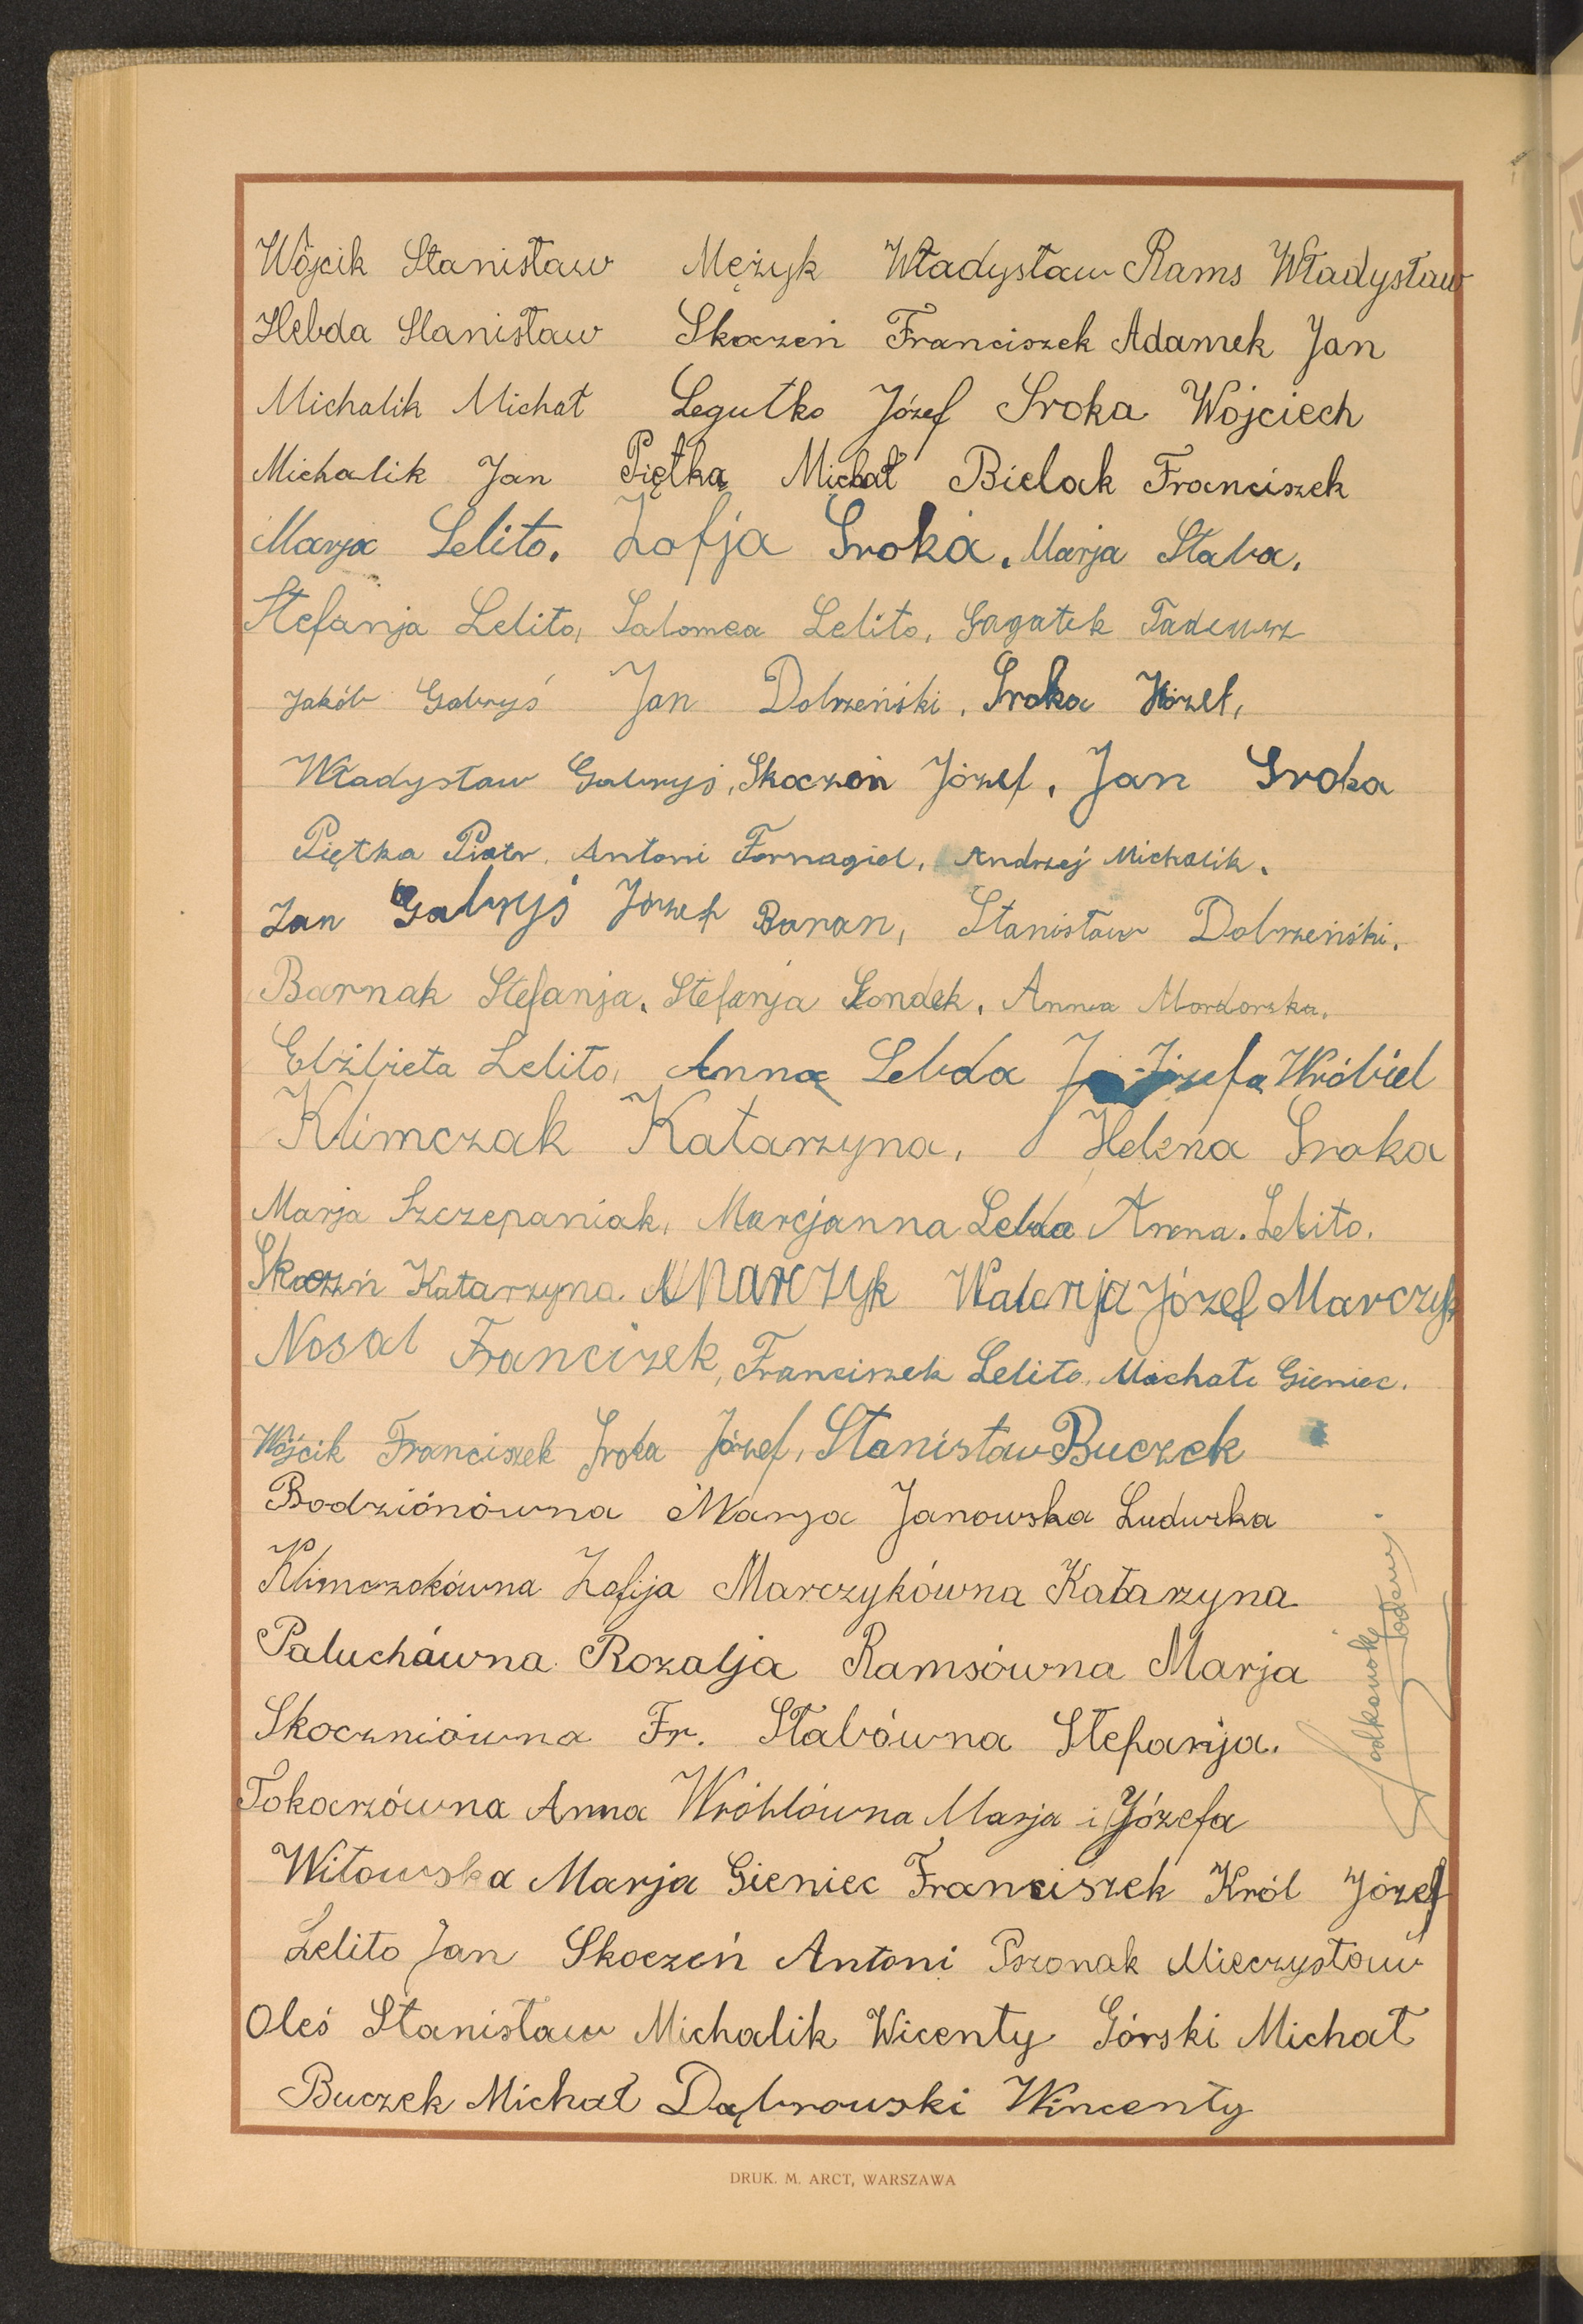 Wójcik Stanisław Mężyk Władysław Rams Władysław
Hebda Stanisław Skoczeń Franciszek Adamek Jan
Michalik Michał Legutko Józef Sroka Wojciech
Michalik Jan Piętka Michał Bielak Franciszek
Marja Lelito. Zofja Sroka. Marja Słaba.
Stefanja Lelito, Salomea Lelito, Gagatek Tadeusz
Jakób Gabryś Jan Dobrzeński, Sroka Józef,
Władysław Gabryś, Skoczoń Józef, Jan Sroka
Piętka Piotr, Antoni Fornagiel, Andrzej Michalik.
Jan Gabryś Józef Baran, Stanisław Dobrzeński.
Barnak Stefanja. Stefanja Londek. Anna Mordorska.
Elżbieta Lelito, Anna Lebda Józefa Wróbiel
Klimczak Katarzyna, Helena Sroka
Marja Szczepaniak, Marcjanna Lebda Anna. Lelito.
Skoczń Katarzyna. Marczyk Walerja Józef Marczyk
Nosal Francizek, Franciszek Lelito, Michał Gieniec.
Wójcik Franciszek Sroka Józef, Stanisław Buczek
Bodziónówna Marja Janowska Ludwika
Klimczokówna Zofija Marczykówna Katarzyna
Paluchówna Rozalja Ramsówna Marja
Skoczniówna Fr. Słabówna Stefanja.
Tokarzówna Anna Wróblówna Marja i Józefa
Witowska Marja Gieniec Franciszek Król Józef
Lelito Jan Skoczeń Antoni Pszonak Mieczysław
Oleś Stanisław Michalik Wicenty Górski Michał
Buczek Michał Dąbrowski Wincenty
DRUK. M. ARCT, WARSZAWA